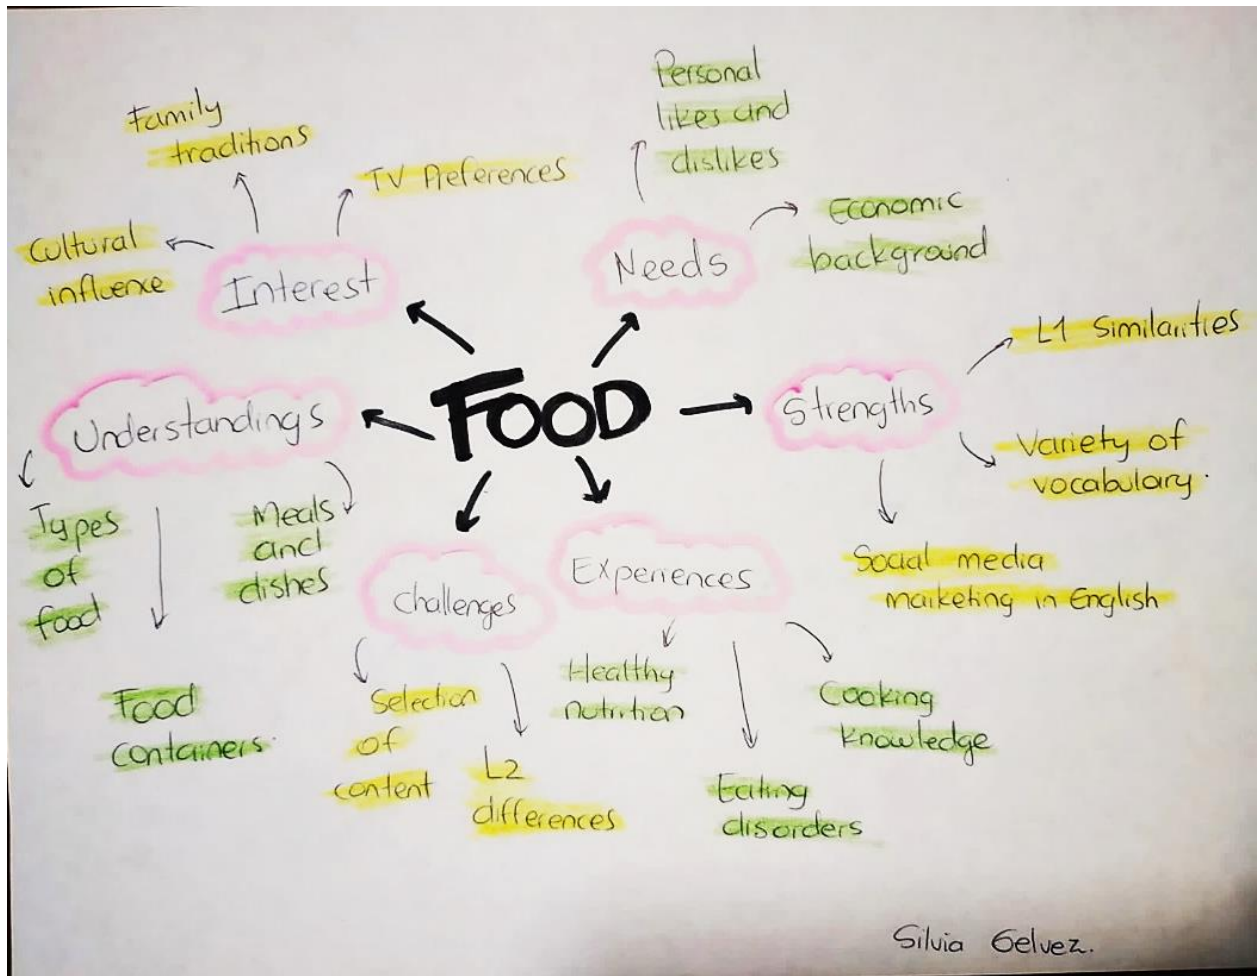 Family
traditions
TV Preferences
Cultural
influence
Interest
Personal
likes and
dislikes
Economic
background
Needs
FOOD
L1 Similarities
Strengths
Variety of
vocabulary.
Social media
marketing in English
Understandings
Types
of
food
Meals
and
dishes
Food
containers.
Challenges
Selection
of
content
L2
differences
Experiences
Healthy
nutrition
Eating
disorders
Cooking
knowledge
Silvia Gelvez.